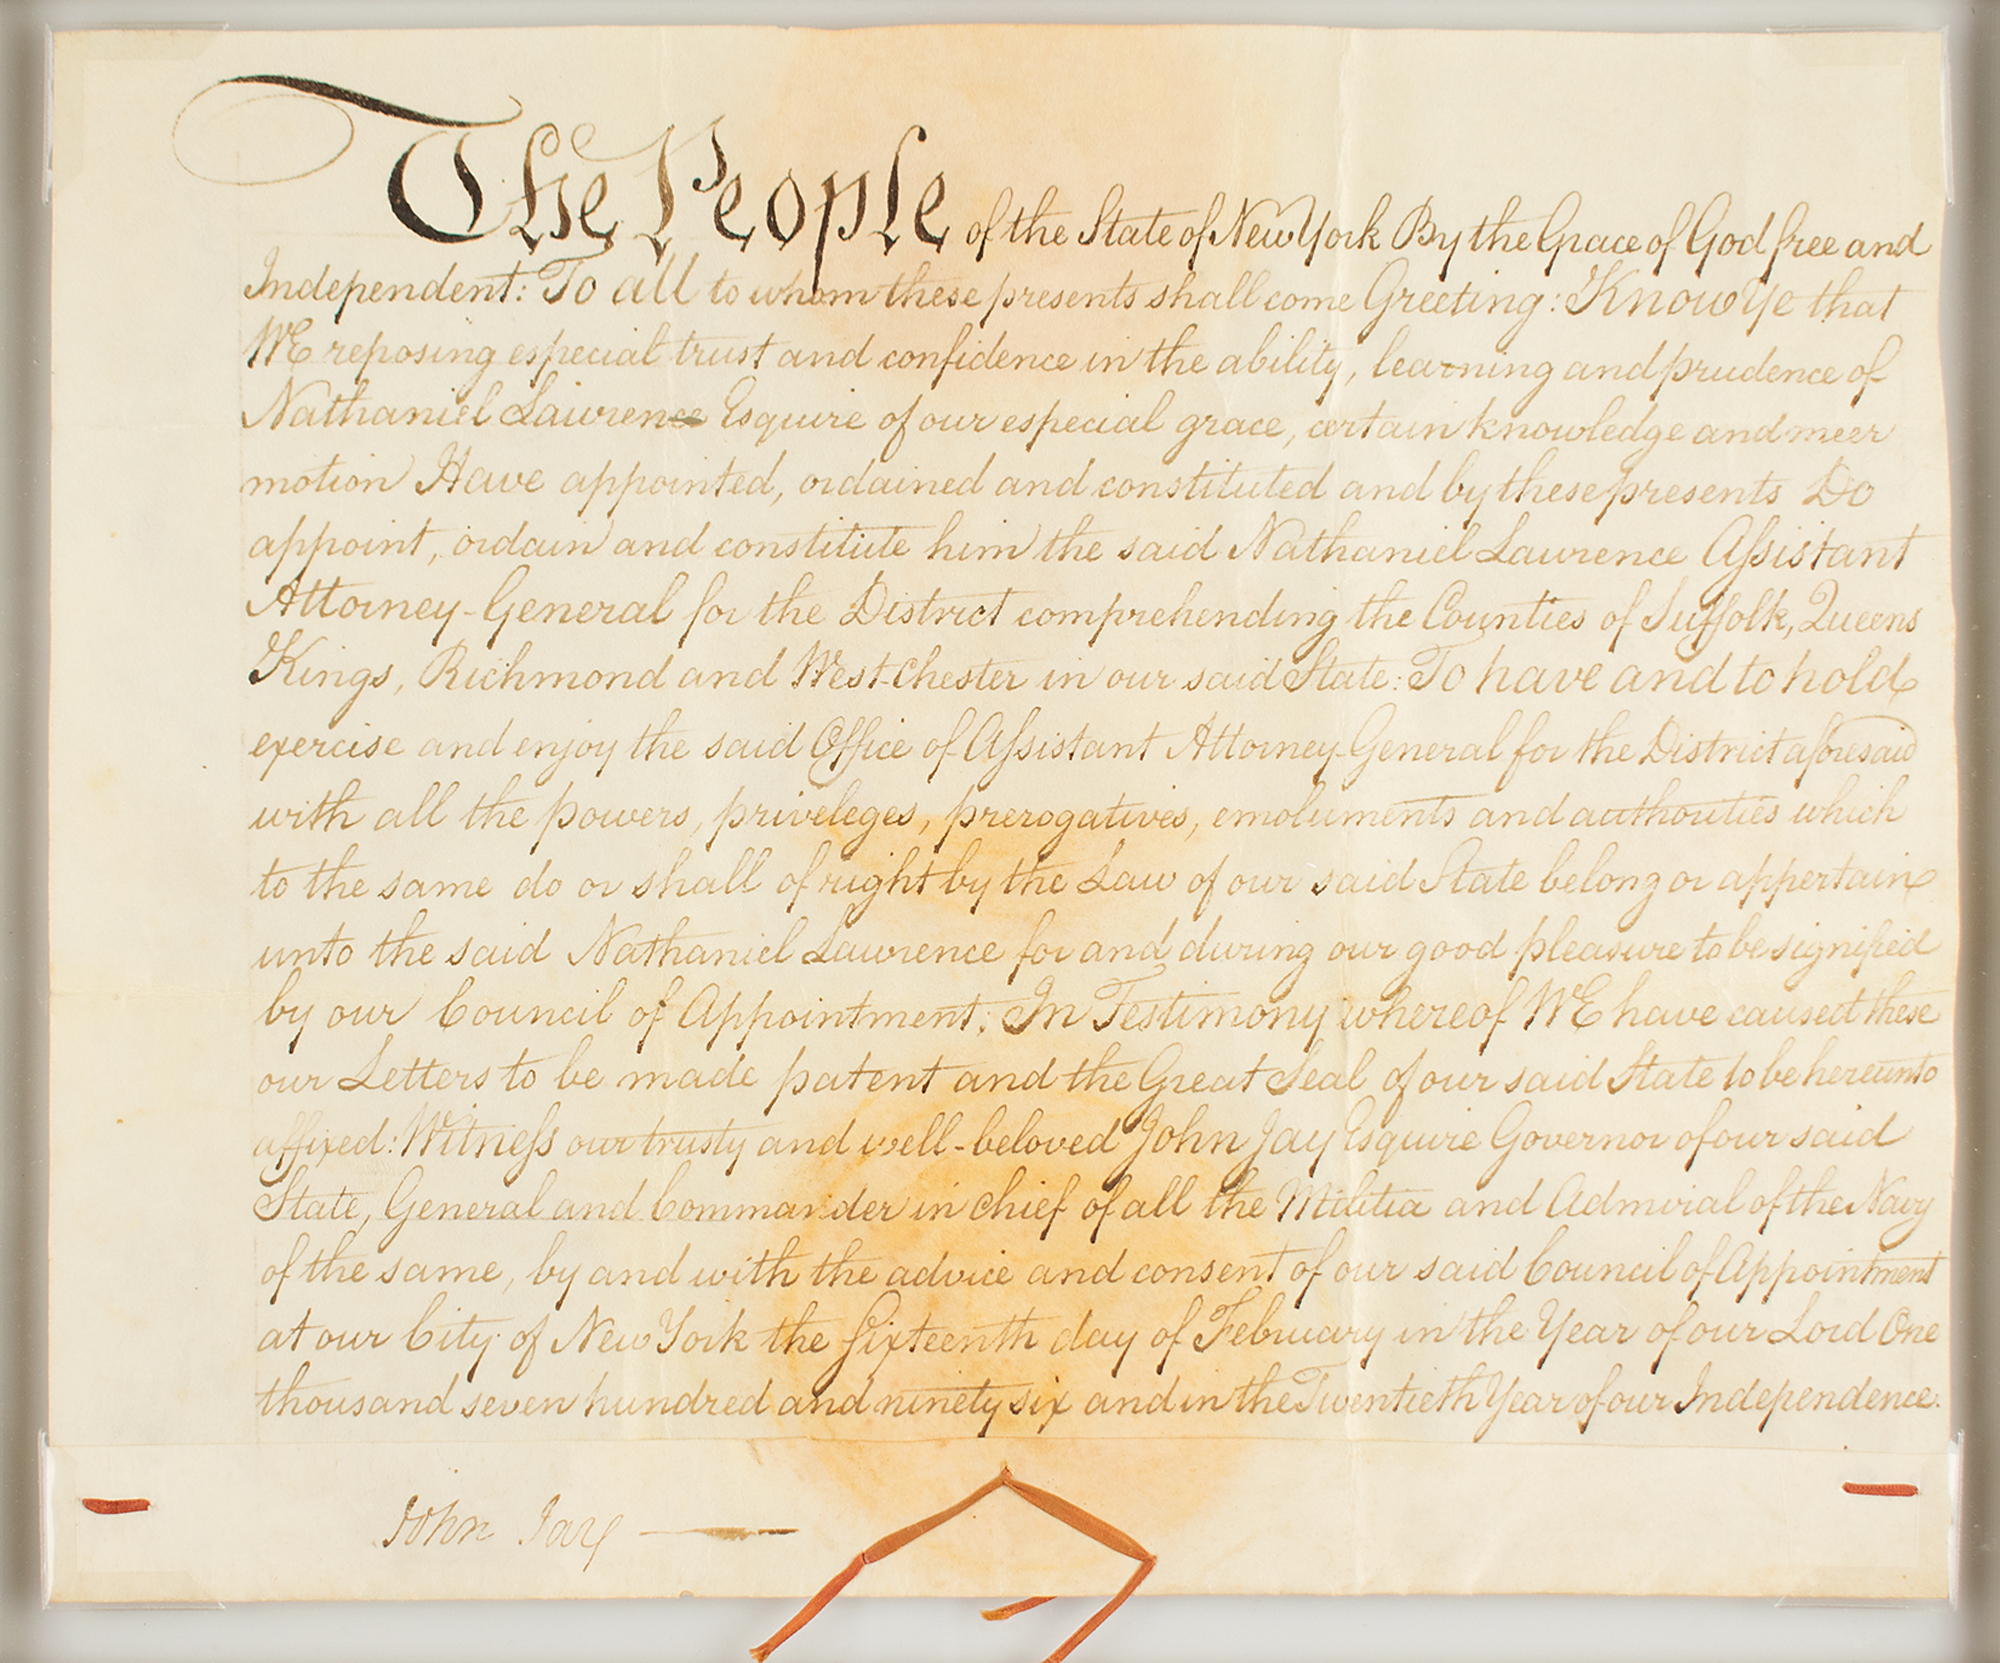 The People of the State of New York By the Grace of God free and
Independent: To all to whom these presents shall come Greeting: Know Ye that
WE reposing especial trust and confidence in the ability, learning and prudence of
Nathaniel Lawrence Esquire of our especial grace, certain knowledge and meer
motion Have appointed, ordained and constituted and by these presents Do
appoint, ordain and constitute him the said Nathaniel Lawrence Assistant
Attorney-General for the District comprehending the Counties of Suffolk, Queens
Kings, Richmond and West-Chester in our said State: To have and to hold
exercise and enjoy the said Office of Assistant Attorney-General for the District aforesaid
with all the powers, priveleges, prerogatives, emoluments and authorities which
to the same do or shall of right by the Law of our said State belong or appertain
unto the said Nathaniel Lawrence for and during our good pleasure to be signified
by our Council of Appointment; In Testimony whereof WE have caused these
our Letters to be made patent and the Great Seal of our said State to be hereunto
affixed: Witness our trusty and well-beloved John Jay Esquire Governor of our said
State, General and Commander in chief of all the Militia and Admiral of the Navy
of the same, by and with the advice and consent of our said Council of Appointment
at our City of New York the Sixteenth day of February in the Year of our Lord One
thousand seven hundred and ninety six and in the Twentieth Year of our Independence.
John Jay